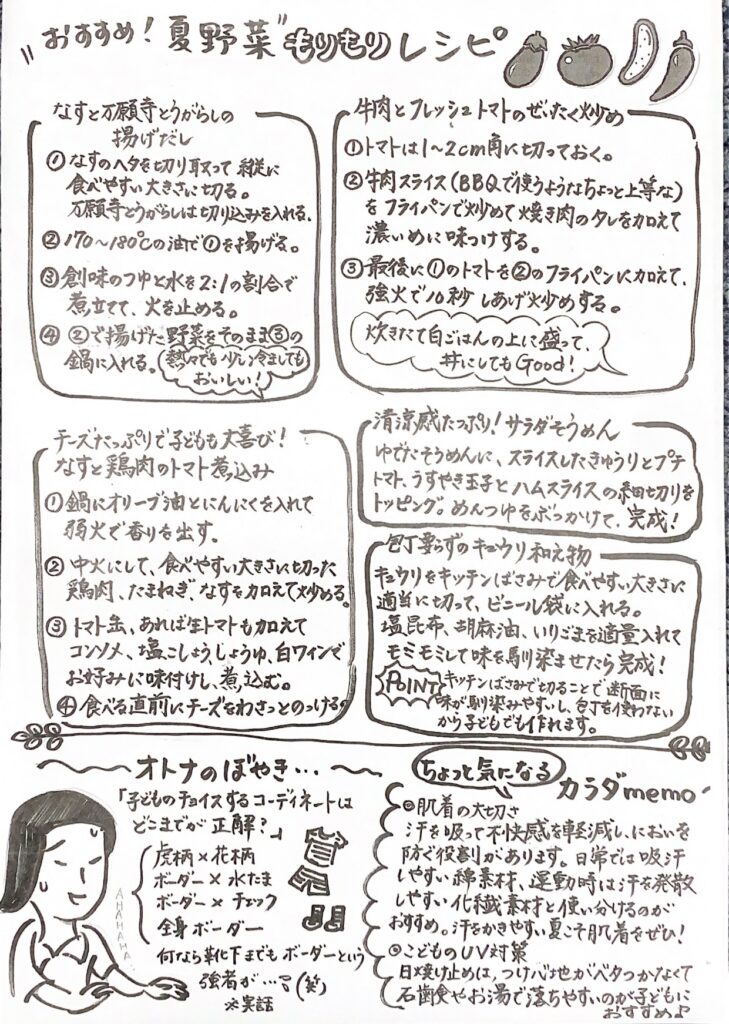 "おすすめ!夏野菜"もりもりレシピ
なすと万願寺とうがらしの
揚げだし
①なすのヘタを切り取って縦に
食べやすい大きさに切る。
万願寺とうがらしは切り込みを入れる.
②170~180℃の油で①を揚げる。
③創味のつゆと水を2:1の割合で
煮立てて、火を止める。
④②で揚げた野菜をそのまま③の
鍋に入れる。
熱々でも少し冷ましても
おいしい!
牛肉とフレッシュトマトのぜいたく炒め
①トマトは1~2cm角に切っておく。
②牛肉スライス(BBQで使うようなちょっと上等な)
をフライパンで炒めて焼き肉のタレを加えて
濃いめに味つけする。
③最後に①のトマトを②のフライパンに加えて、
強火で10秒しあげ炒めする。
炊きたて白ごはんの上に盛って、
丼にしてもGood!
チーズたっぷりで子どもも大喜び!
なすと鶏肉のトマト煮込み
①鍋にオリーブ油とにんにくを入れて
弱火で香りを出す。
②中火にして、食べやすい大きさに切った
鶏肉、たまねぎ、なすを加えて炒める。
③トマト缶、あれば生トマトも加えて
コンソメ、塩こしょう、しょうゆ、白ワインで
お好みに味付けし、煮込む。
④食べる直前にチーズをわさっとのっける。
清涼感たっぷり!サラダそうめん
ゆでたそうめんに、スライスしたきゅうりとプチ
トマト、うすやき玉子とハムスライスの細切りを
トッピング。めんつゆをぶっかけて、完成!
包丁要らずのキュウリ和え物
キュウリをキッチンばさみで食べやすい大きさに
適当に切って、ビニール袋に入れる。
塩昆布、胡麻油、いりごまを適量入れて
モミモミして味を馴染ませたら完成!
POINT
キッチンばさみで切ることで断面に
味が馴染みやすいし、包丁を使わない
から子どもでも作れます。
オトナのぼやき…
「子どものチョイスするコーディネートは
どこまでが正解?」
虎柄×花柄
ボーダー×水たま
ボーダー×チェック
全身ボーダー
何なら靴下までもボーダーという
強者が…(笑)
※実話
AHAHAHA
ちょっと気になる
カラダmemo
肌着の大切さ
汗を吸って不快感を軽減し、においを
防ぐ役割があります。日常では吸汗
しやすい綿素材、運動時は汗を発散
しやすい化繊素材と使い分けるのが
おすすめ。汗をかきやすい夏こそ肌着をぜひ!
こどものUV対策
日焼け止めは、つけ心地がベタつかなくて
石鹸やお湯で落ちやすいのが子どもに
おすすめ♪